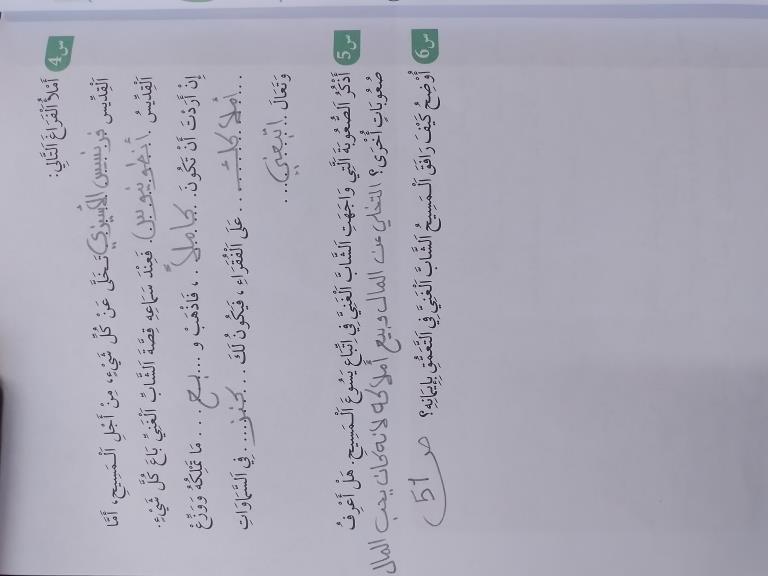 س4 أَمْلَأُ الْفَرَاغَ التَّالِيَ:
الْقِدِّيسُ فرنسيس الأسيزي تَخَلَّى عَنْ كُلِّ شَيْءٍ، مِنْ أَجْلِ الْمَسِيحِ، أَمَّا
الْقِدِّيسُ أنطونيوس. فَعِنْدَ سَمَاعِهِ قِصَّةَ الشَّابِّ الْغَنِيِّ بَاعَ كُلَّ شَيْءٍ.
إِنْ أَرَدْتَ أَنْ تَكُونَ.. كاملاً ..، فَاذْهَبْ وَ.... بع .... مَا تَمْلِكُهُ وَوَزِّعْ
... أملاكك ... عَلَى الْفُقَرَاءِ، فَيَكُونُ لَكَ... كنز.... فِي السَّمَاوَاتِ
وَتَعَالَ .. اتبعني...
س5 أَذْكُرُ الصُّعُوبَةَ الَّتِي وَاجَهَتِ الشَّابَّ الْغَنِيَّ فِي اتِّبَاعِ يَسُوعَ الْمَسِيحِ. هَلْ أَعْرِفُ
صُعُوبَاتٍ أُخْرَى؟ التخلي عن المال وبيع أملاكه لانه كان يحب المال
س6 أُوَضِّحُ كَيْفَ رَافَقَ الْمَسِيحُ الشَّابَّ الْغَنِيَّ فِي التَّعَمُّقِ بِإِيمَانِهِ؟
ص 51